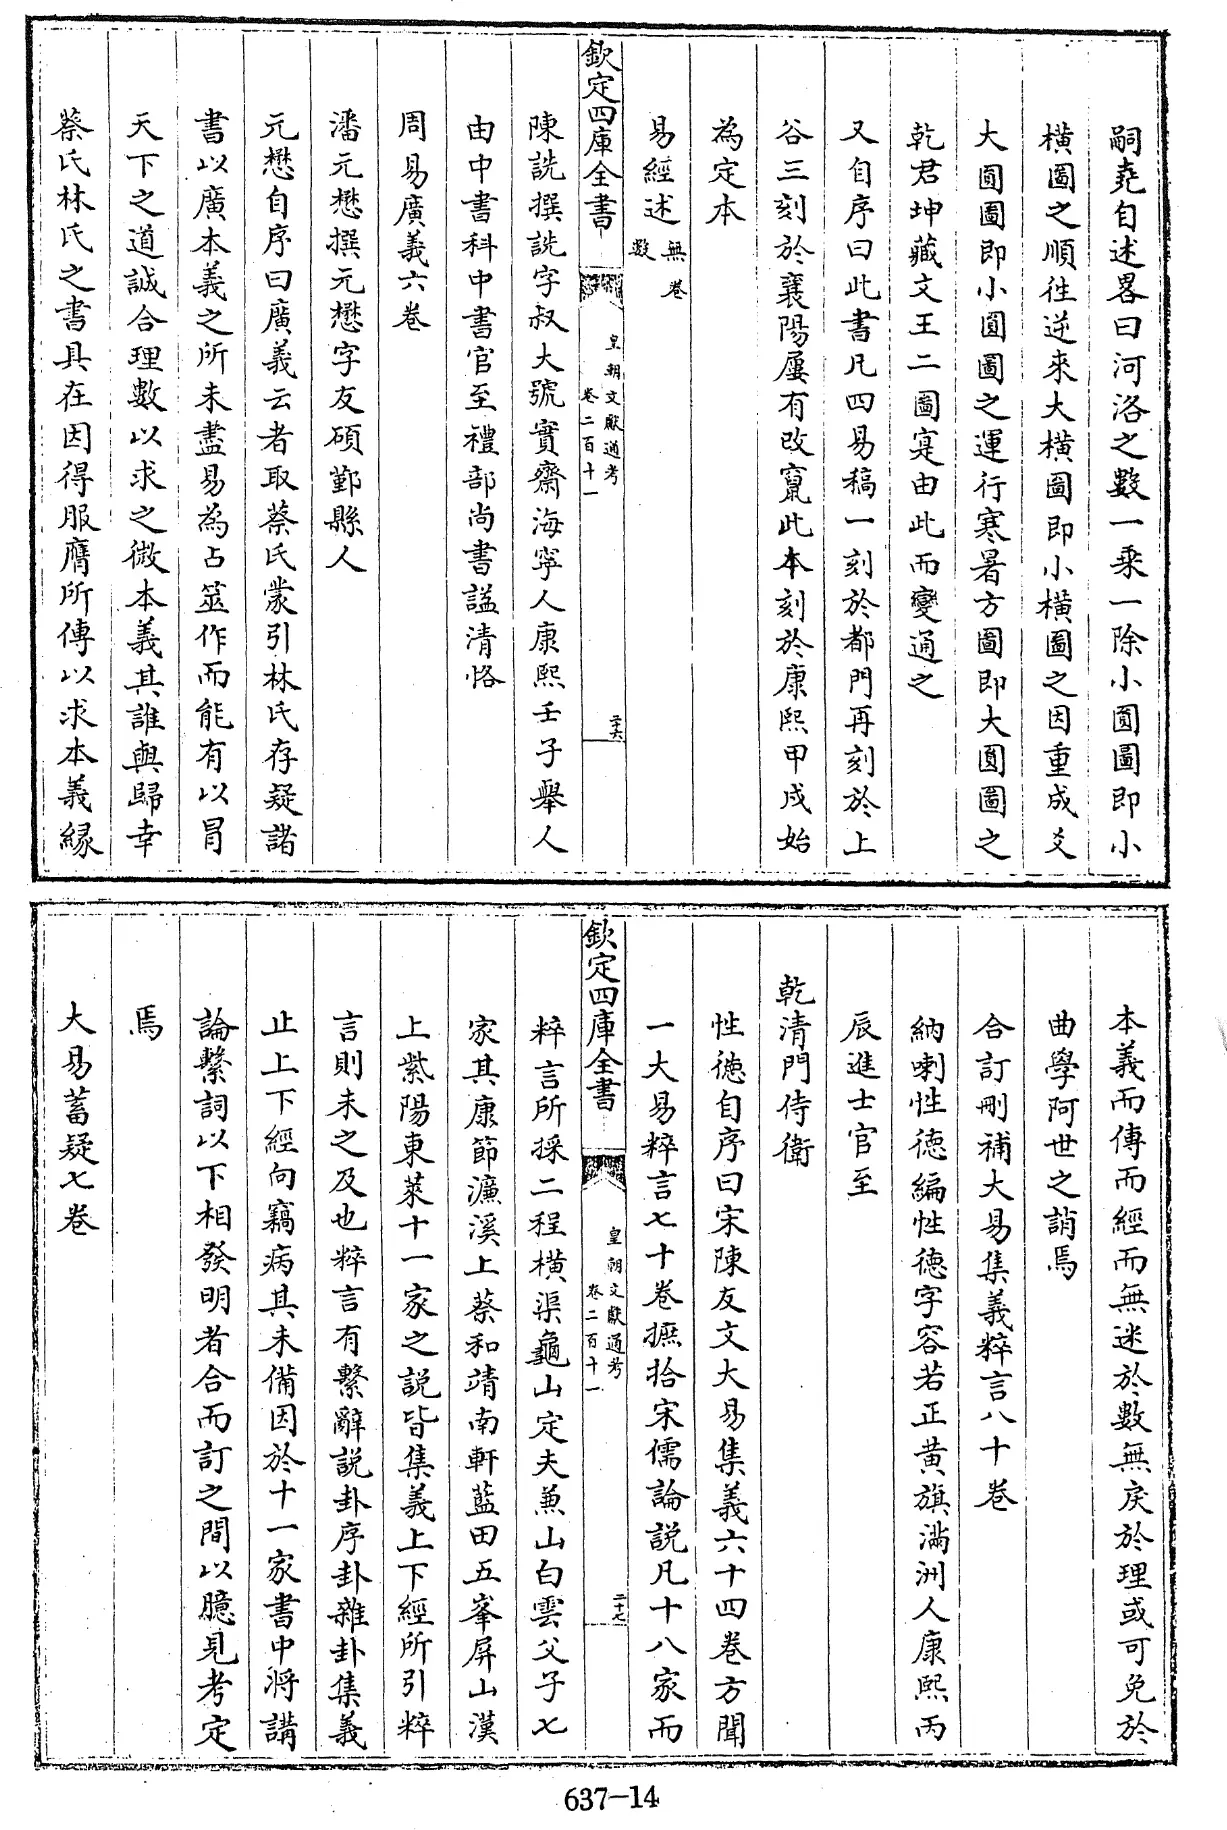 嗣堯自述畧曰河洛之數一乘一除小圓圖即小
橫圖之順徃逆來大橫圖即小橫圖之因重成爻
大圓圖即小圓圖之運行寒暑方圖即大圓圖之
乾君坤藏文王二圖寔由此而變通之
又自序曰此書凡四易稿一刻於都門再刻於上
谷三刻於襄陽屢有改竄此本刻於康熙甲戌始
為定本
易經述無卷數
欽定四庫全書
皇朝文獻通考
卷二百十一
二十六
陳詵撰詵字叔大號實齋海寧人康熙壬子舉人
由中書科中書官至禮部尚書諡清恪
周易廣義六卷
潘元懋撰元懋字友碩鄞縣人
元懋自序曰廣義云者取蔡氏蒙引林氏存疑諸
書以廣本義之所未盡易為占筮作而能有以冒
天下之道誠合理數以求之微本義其誰與歸幸
蔡氏林氏之書具在因得服膺所傳以求本義緣
本義而傳而經而無迷於數無戾於理或可免於
曲學阿世之誚焉
合訂刪補大易集義粹言八十卷
納喇性德編性德字容若正黃旗滿洲人康熙丙
辰進士官至
乾清門侍衛
性德自序曰宋陳友文大易集義六十四卷方聞
一大易粹言七十卷摭拾宋儒論說凡十八家而
欽定四庫全書
皇朝文獻通考
卷二百十一
二十七
粹言所採二程橫渠龜山定夫兼山白雲父子七
家其康節濂溪上蔡和靖南軒藍田五峯屏山漢
上紫陽東萊十一家之說皆集義上下經所引粹
言則未之及也粹言有繫辭說卦序卦雜卦集義
止上下經向竊病其未備因於十一家書中將講
論繫詞以下相發明者合而訂之間以臆見考定
焉
大易蓄疑七卷
637-14